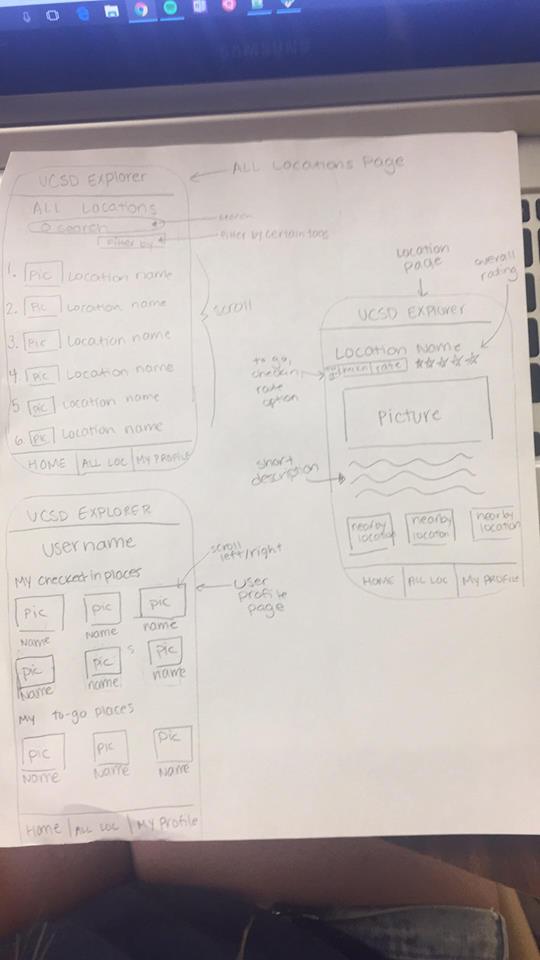 SAMSUNG
UCSD Explorer
ALL Locations Page
ALL Locations
search
search
Filter by
Filter by certain tags
1. Pic Location name
2. Pic Location name
3. Pic Location name
4. Pic Location name
5 pic Location name
6. Pic Location name
scroll
HOME ALL LOC MY PROFILE
Location
page
overall
rating
UCSD Explorer
Location Name
to go,
checkin
rate
option
rate
picture
short
description
nearby
location
nearby
location
nearby
location
HOME ALL LOC MY PROFILE
UCSD EXPLORER
username
scroll
left/right
My checked in places
User
profile
page
Pic pic pic
Name Name name
Pic pic pic
Name name name
s
My to-go places
Pic Pic Pic
Name Name Name
Home ALL LOC My Profile